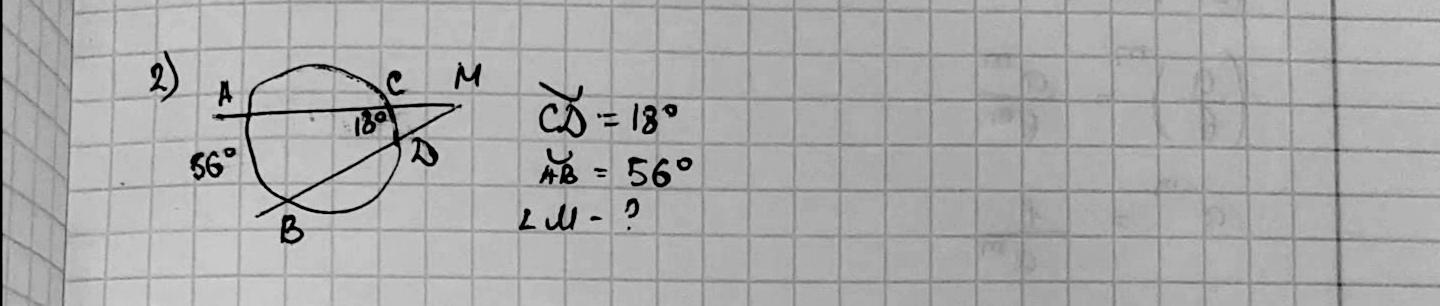 2)
A
C
M
18°
56°
D
B
C͝D = 18°
A͝B = 56°
∠M - ?